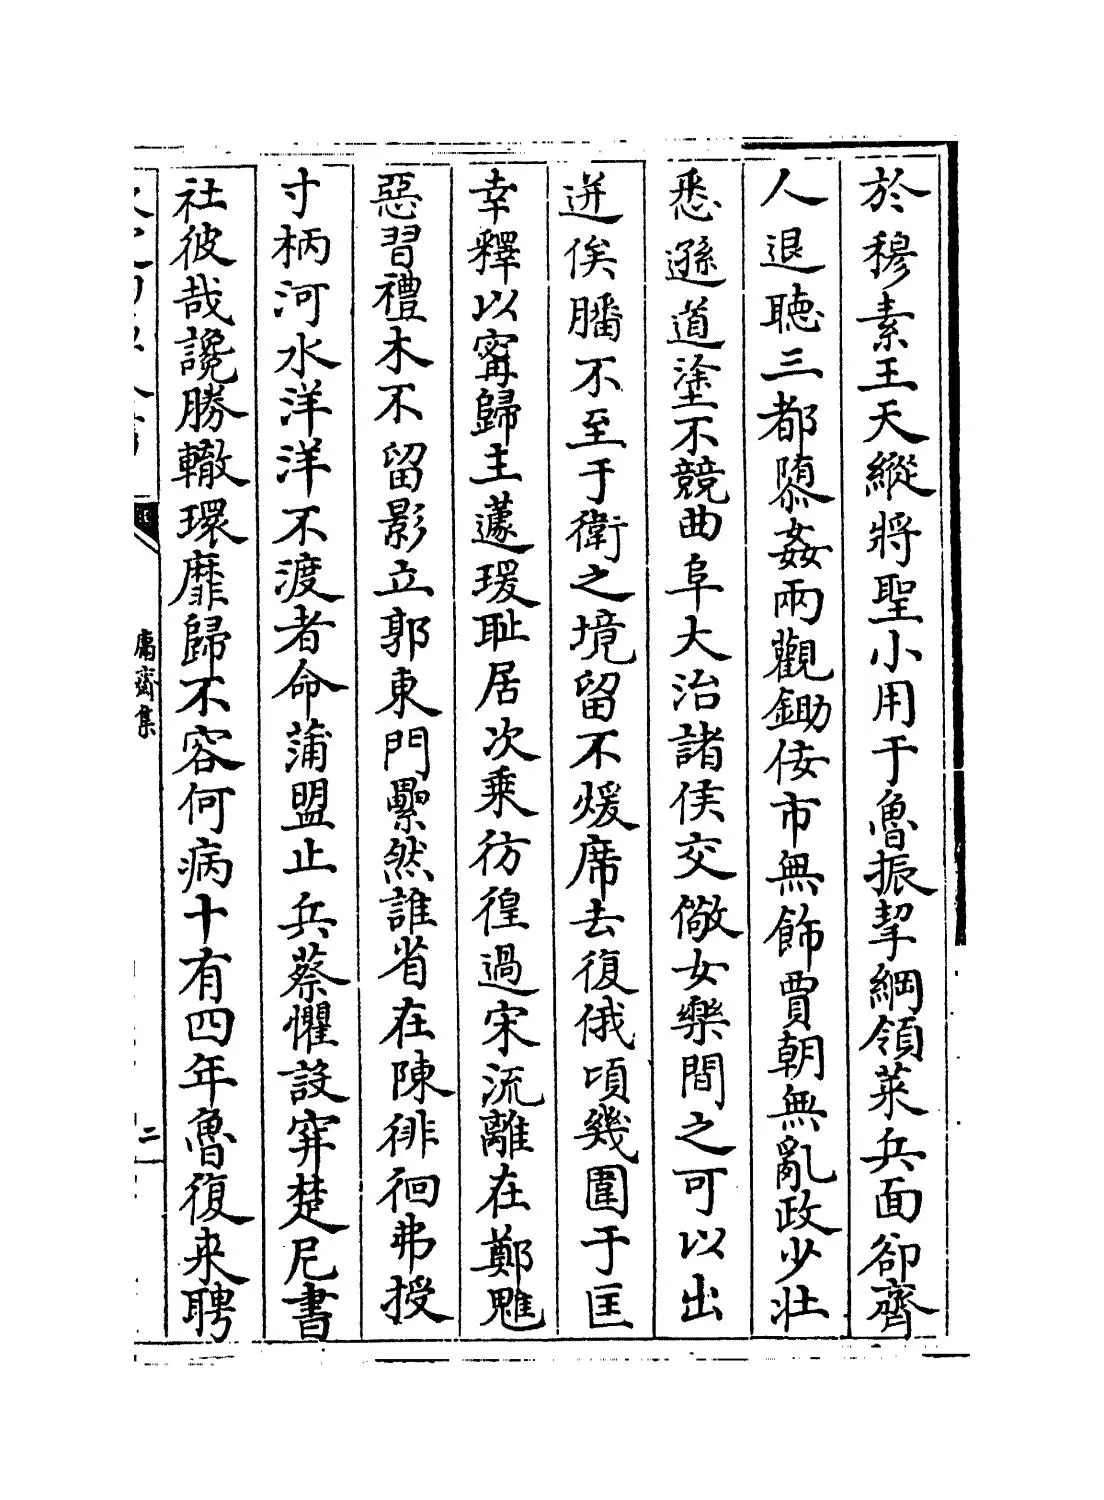 於穆素王天縱將聖小用于魯振挈綱領萊兵面卻齊
人退聽三都隳姦兩觀鋤佞市無飾賈朝無亂政少壯
悉遜道塗不競曲阜大治諸侯交儆女樂間之可以出
迸俟膰不至于衛之境留不煖席去復俄頃幾圍于匡
幸釋以甯歸主蘧瑗恥居次乘彷徨過宋流離在鄭魋
惡習禮木不留影立郭東門纍然誰省在陳徘徊弗授
寸柄河水洋洋不渡者命蒲盟止兵蔡懼設穽楚尼書
社彼哉讒勝轍環靡歸不容何病十有四年魯復来聘
庸齋集
二